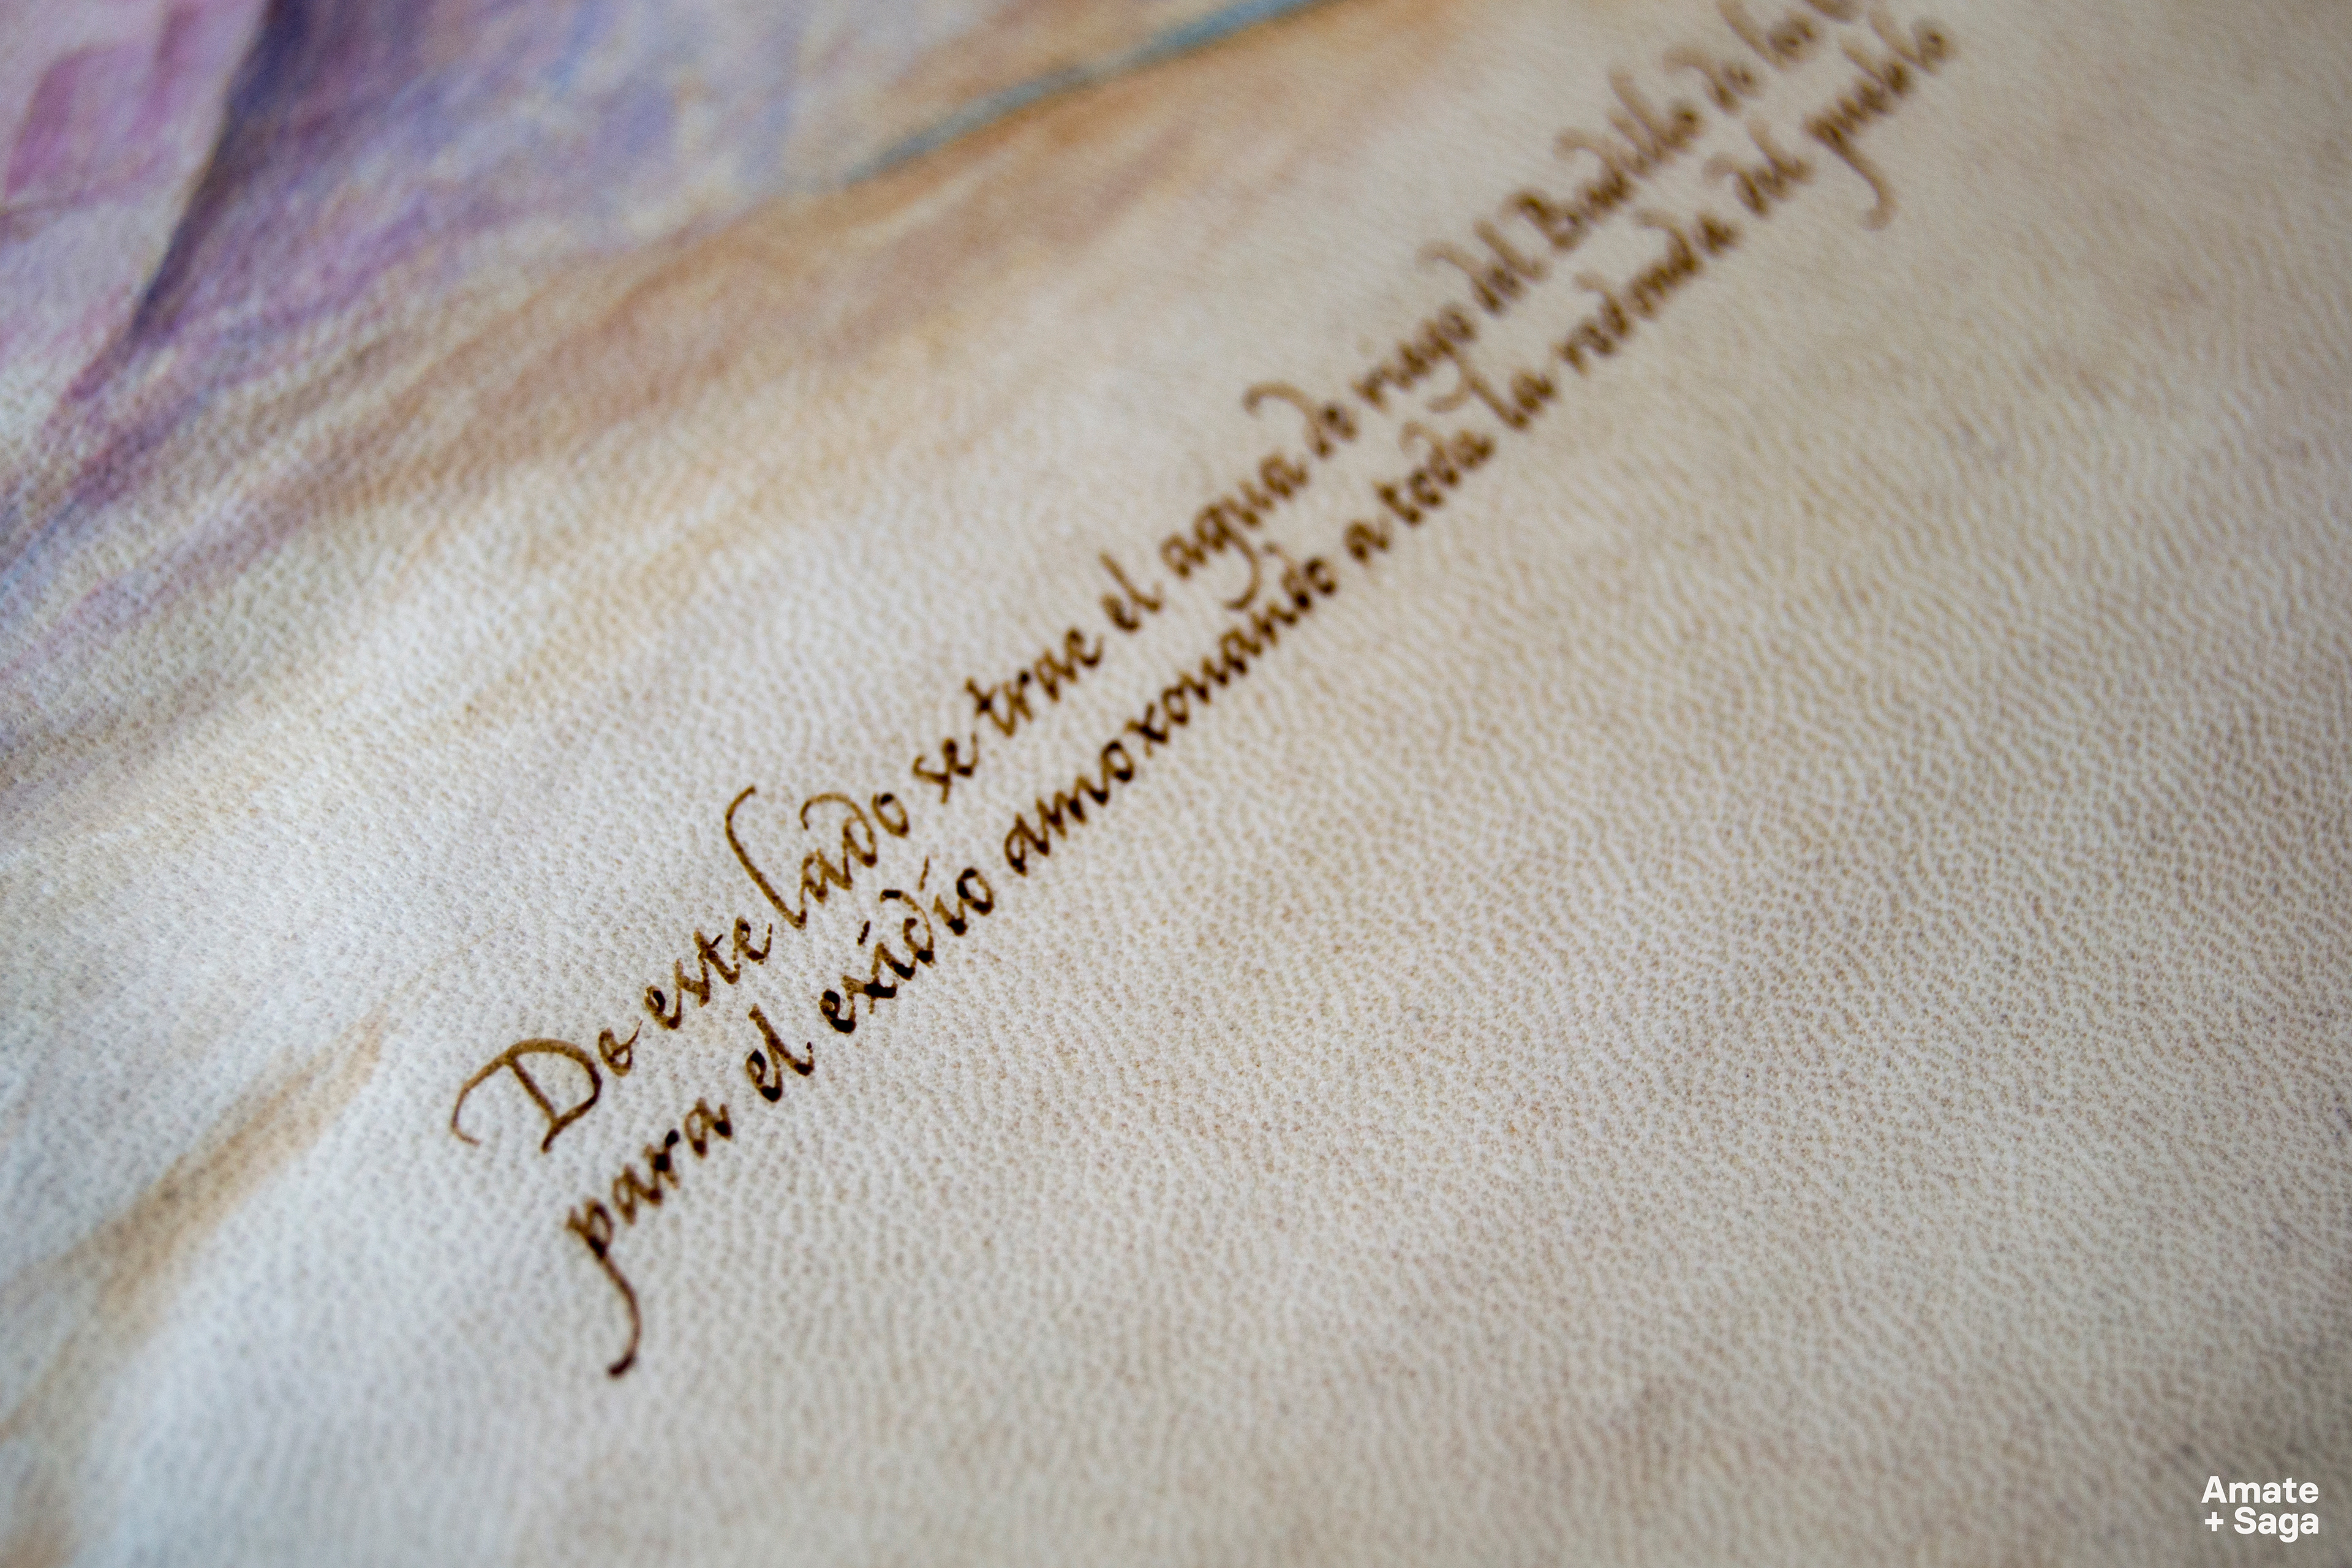 De este lado se trae el agua de mayo del Bindillo de los
para el exidio amoxonando a toda la redonda del pueblo
Amate
+ Saga